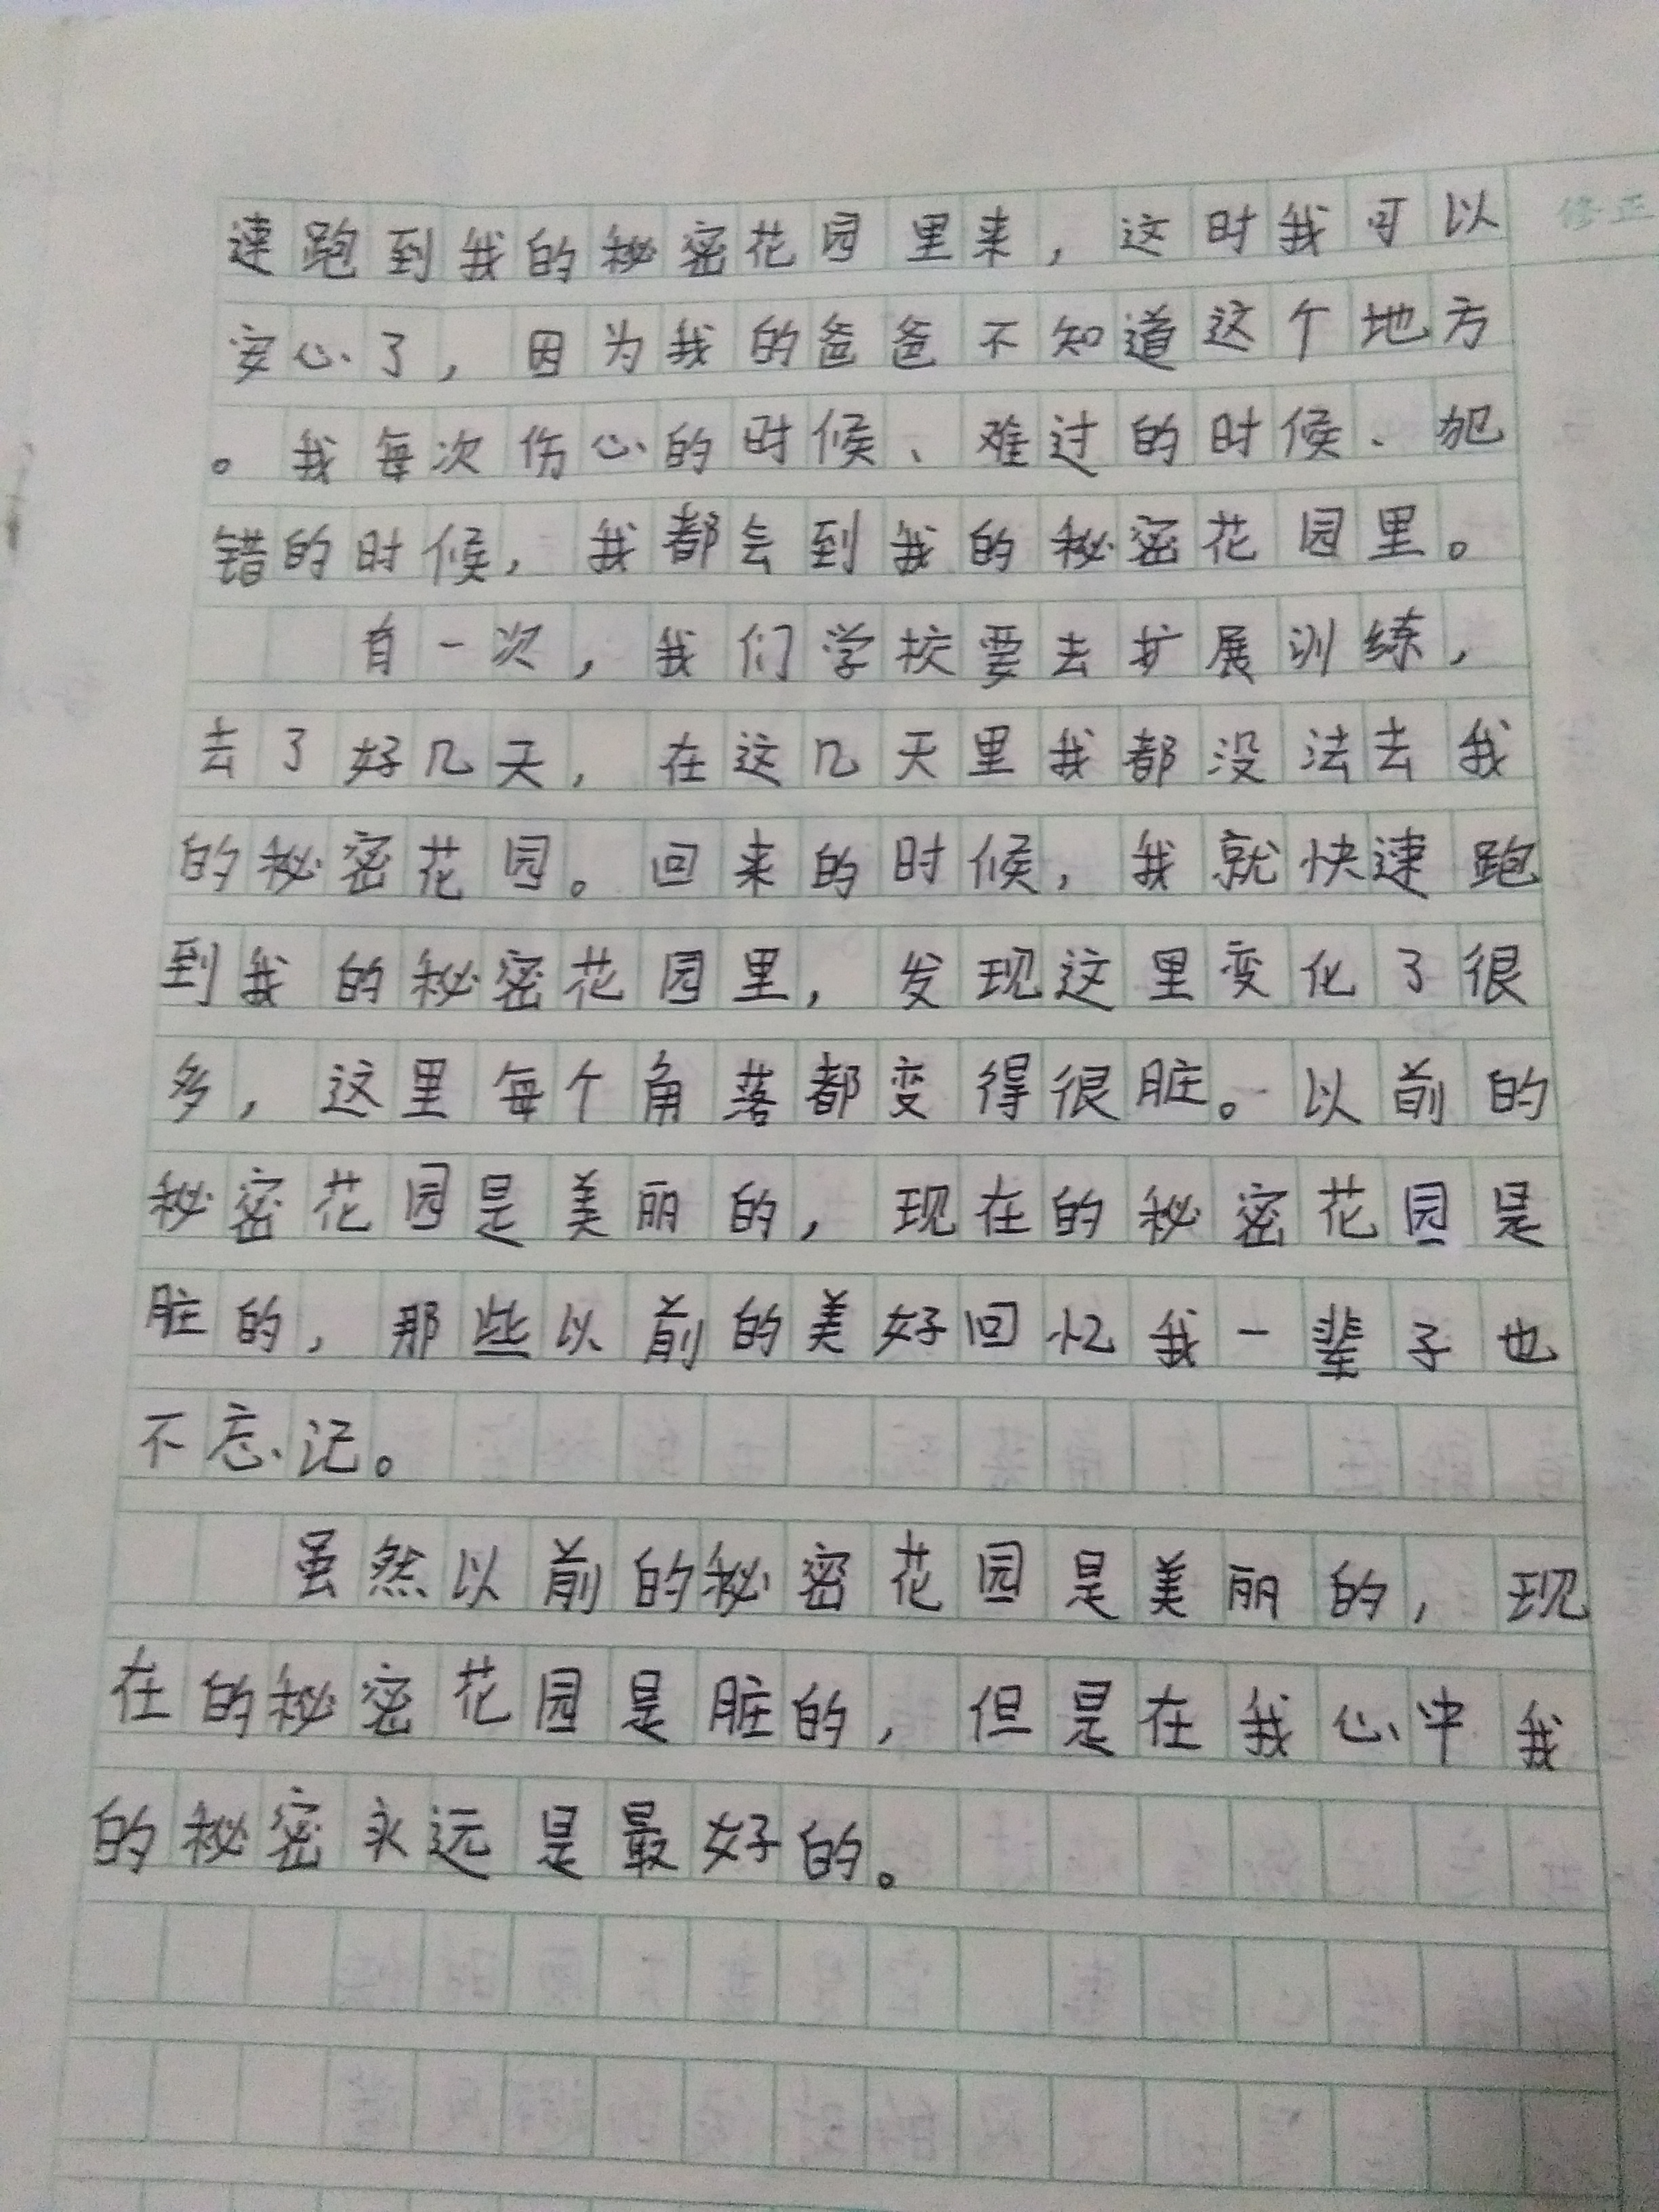 速跑到我的秘密花园里来，这时我可以
修正
安心了，因为我的爸爸不知道这个地方
。我每次伤心的时候、难过的时候、犯
错的时候，我都会到我的秘密花园里。
有一次，我们学校要去扩展训练，
去了好几天，在这几天里我都没法去我
的秘密花园。回来的时候，我就快速跑
到我的秘密花园里，发现这里变化了很
多，这里每个角落都变得很脏。以前的
秘密花园是美丽的，现在的秘密花园是
脏的，那些以前的美好回忆我一辈子也
不忘记。
虽然以前的秘密花园是美丽的，现
在的秘密花园是脏的，但是在我心中我
的秘密永远是最好的。